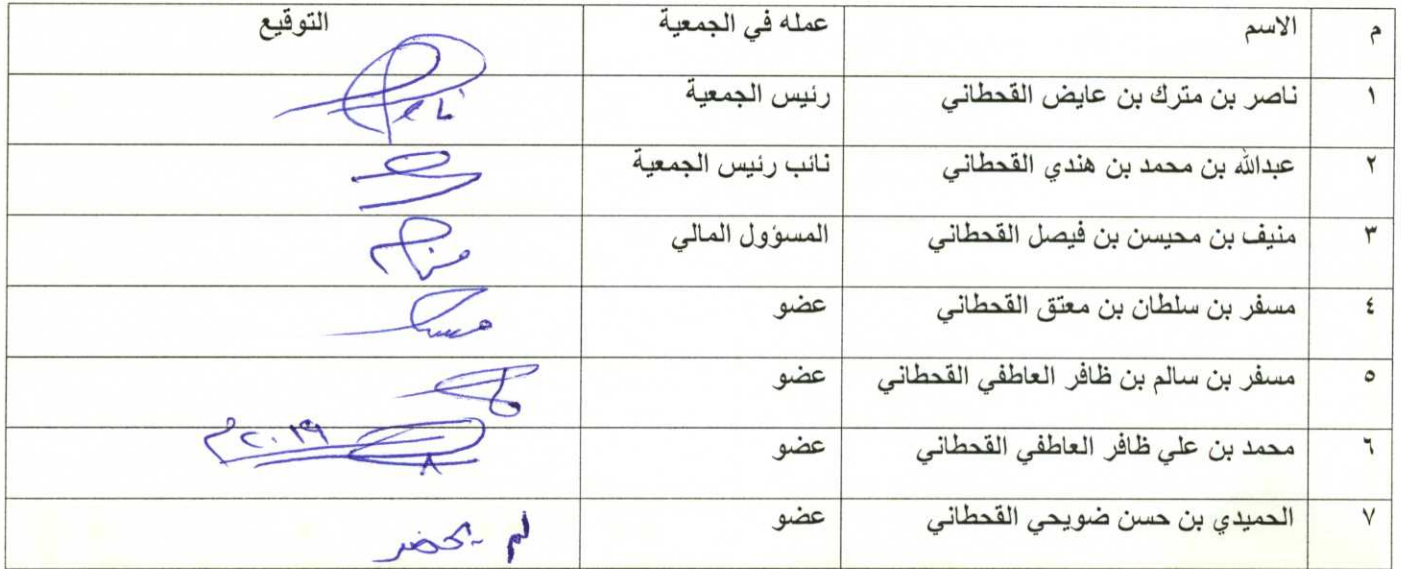 م الاسم عمله في الجمعية التوقيع
١ ناصر بن مترك بن عايض القحطاني رئيس الجمعية
٢ عبدالله بن محمد بن هندي القحطاني نائب رئيس الجمعية
٣ منيف بن محيسن بن فيصل القحطاني المسؤول المالي
٤ مسفر بن سلطان بن معتق القحطاني عضو
٥ مسفر بن سالم بن ظافر العاطفي القحطاني عضو
٦ محمد بن علي ظافر العاطفي القحطاني عضو ٢٠١٩م
٧ الحميدي بن حسن ضويحي القحطاني عضو لم يحضر